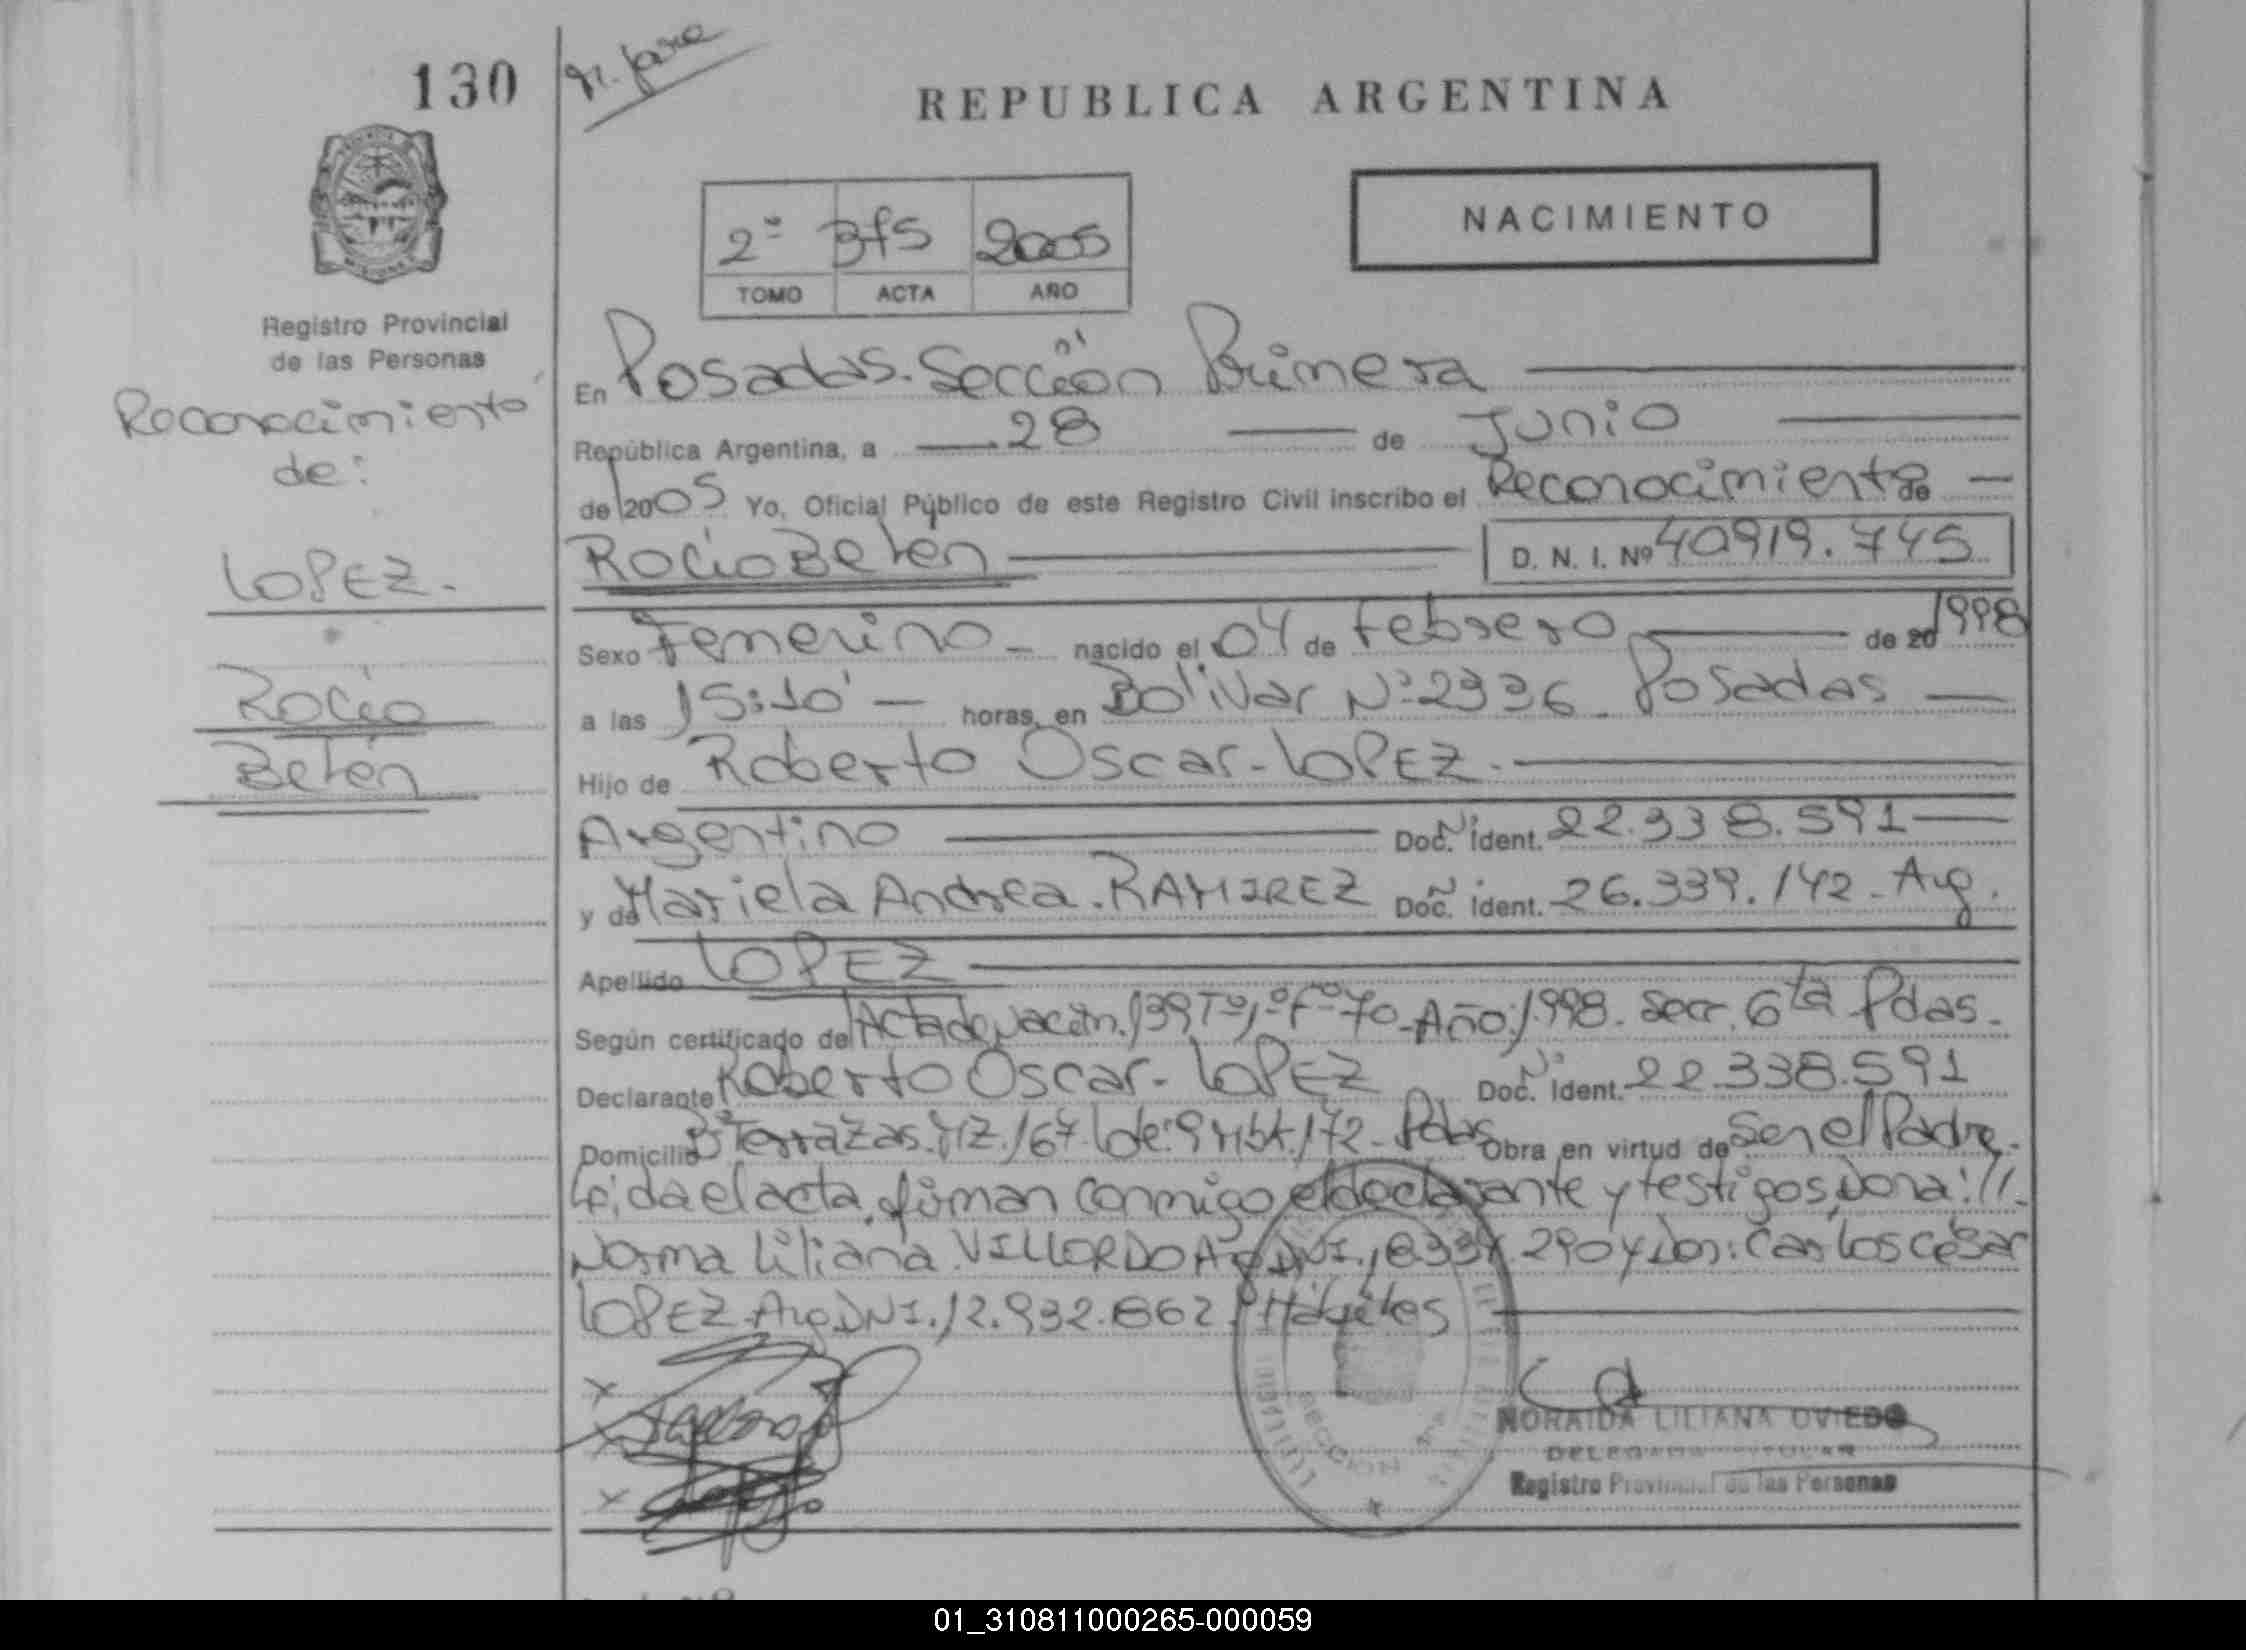 130
REPUBLICA ARGENTINA
NACIMIENTO
2º 3f5 2005
TOMO ACTA AÑO
Registro Provincial
de las Personas
Reconocimiento
de:
LOPEZ.
Rocío
Belén
En Posadas. Sección Primera
República Argentina, a 28 de Junio
de 2005 Yo, Oficial Público de este Registro Civil inscribo el Reconocimiento de
Rocío Belén D. N. I. Nº 40919.745
Sexo Femenino nacido el 04 de Febrero de 20 1998
a las 15:10' horas, en Bolivar Nº 2336 Posadas
Hijo de Roberto Oscar LOPEZ.
Argentino Doc. Ident. 22.338.591
y de Mariela Andrea. RAMIREZ Doc. Ident. 26.339.142 - Arg.
Apellido LOPEZ
Según certificado de Acta de Nacim. 139 Tº 1º Fº 70 - Año: 1998. Secc. 6ta Pdas.
Declarante Roberto Oscar - LOPEZ Doc. Ident. 22.338.591
Domicilio Bº Terrazas. MZ. 167 Obra en virtud de Ser el Padre.
Leida el acta, firman conmigo el declarante y testigos Dona: //.
Norma Liliana VILLORDO Arg DNI. 290 y Don: Carlos César
LOPEZ Arg DNI. 12.932.862. Hábiles
NORAIDA LILIANA OVIEDO
DELEGADA TITULAR
Registro Provincial de las Personas
01_310811000265-000059